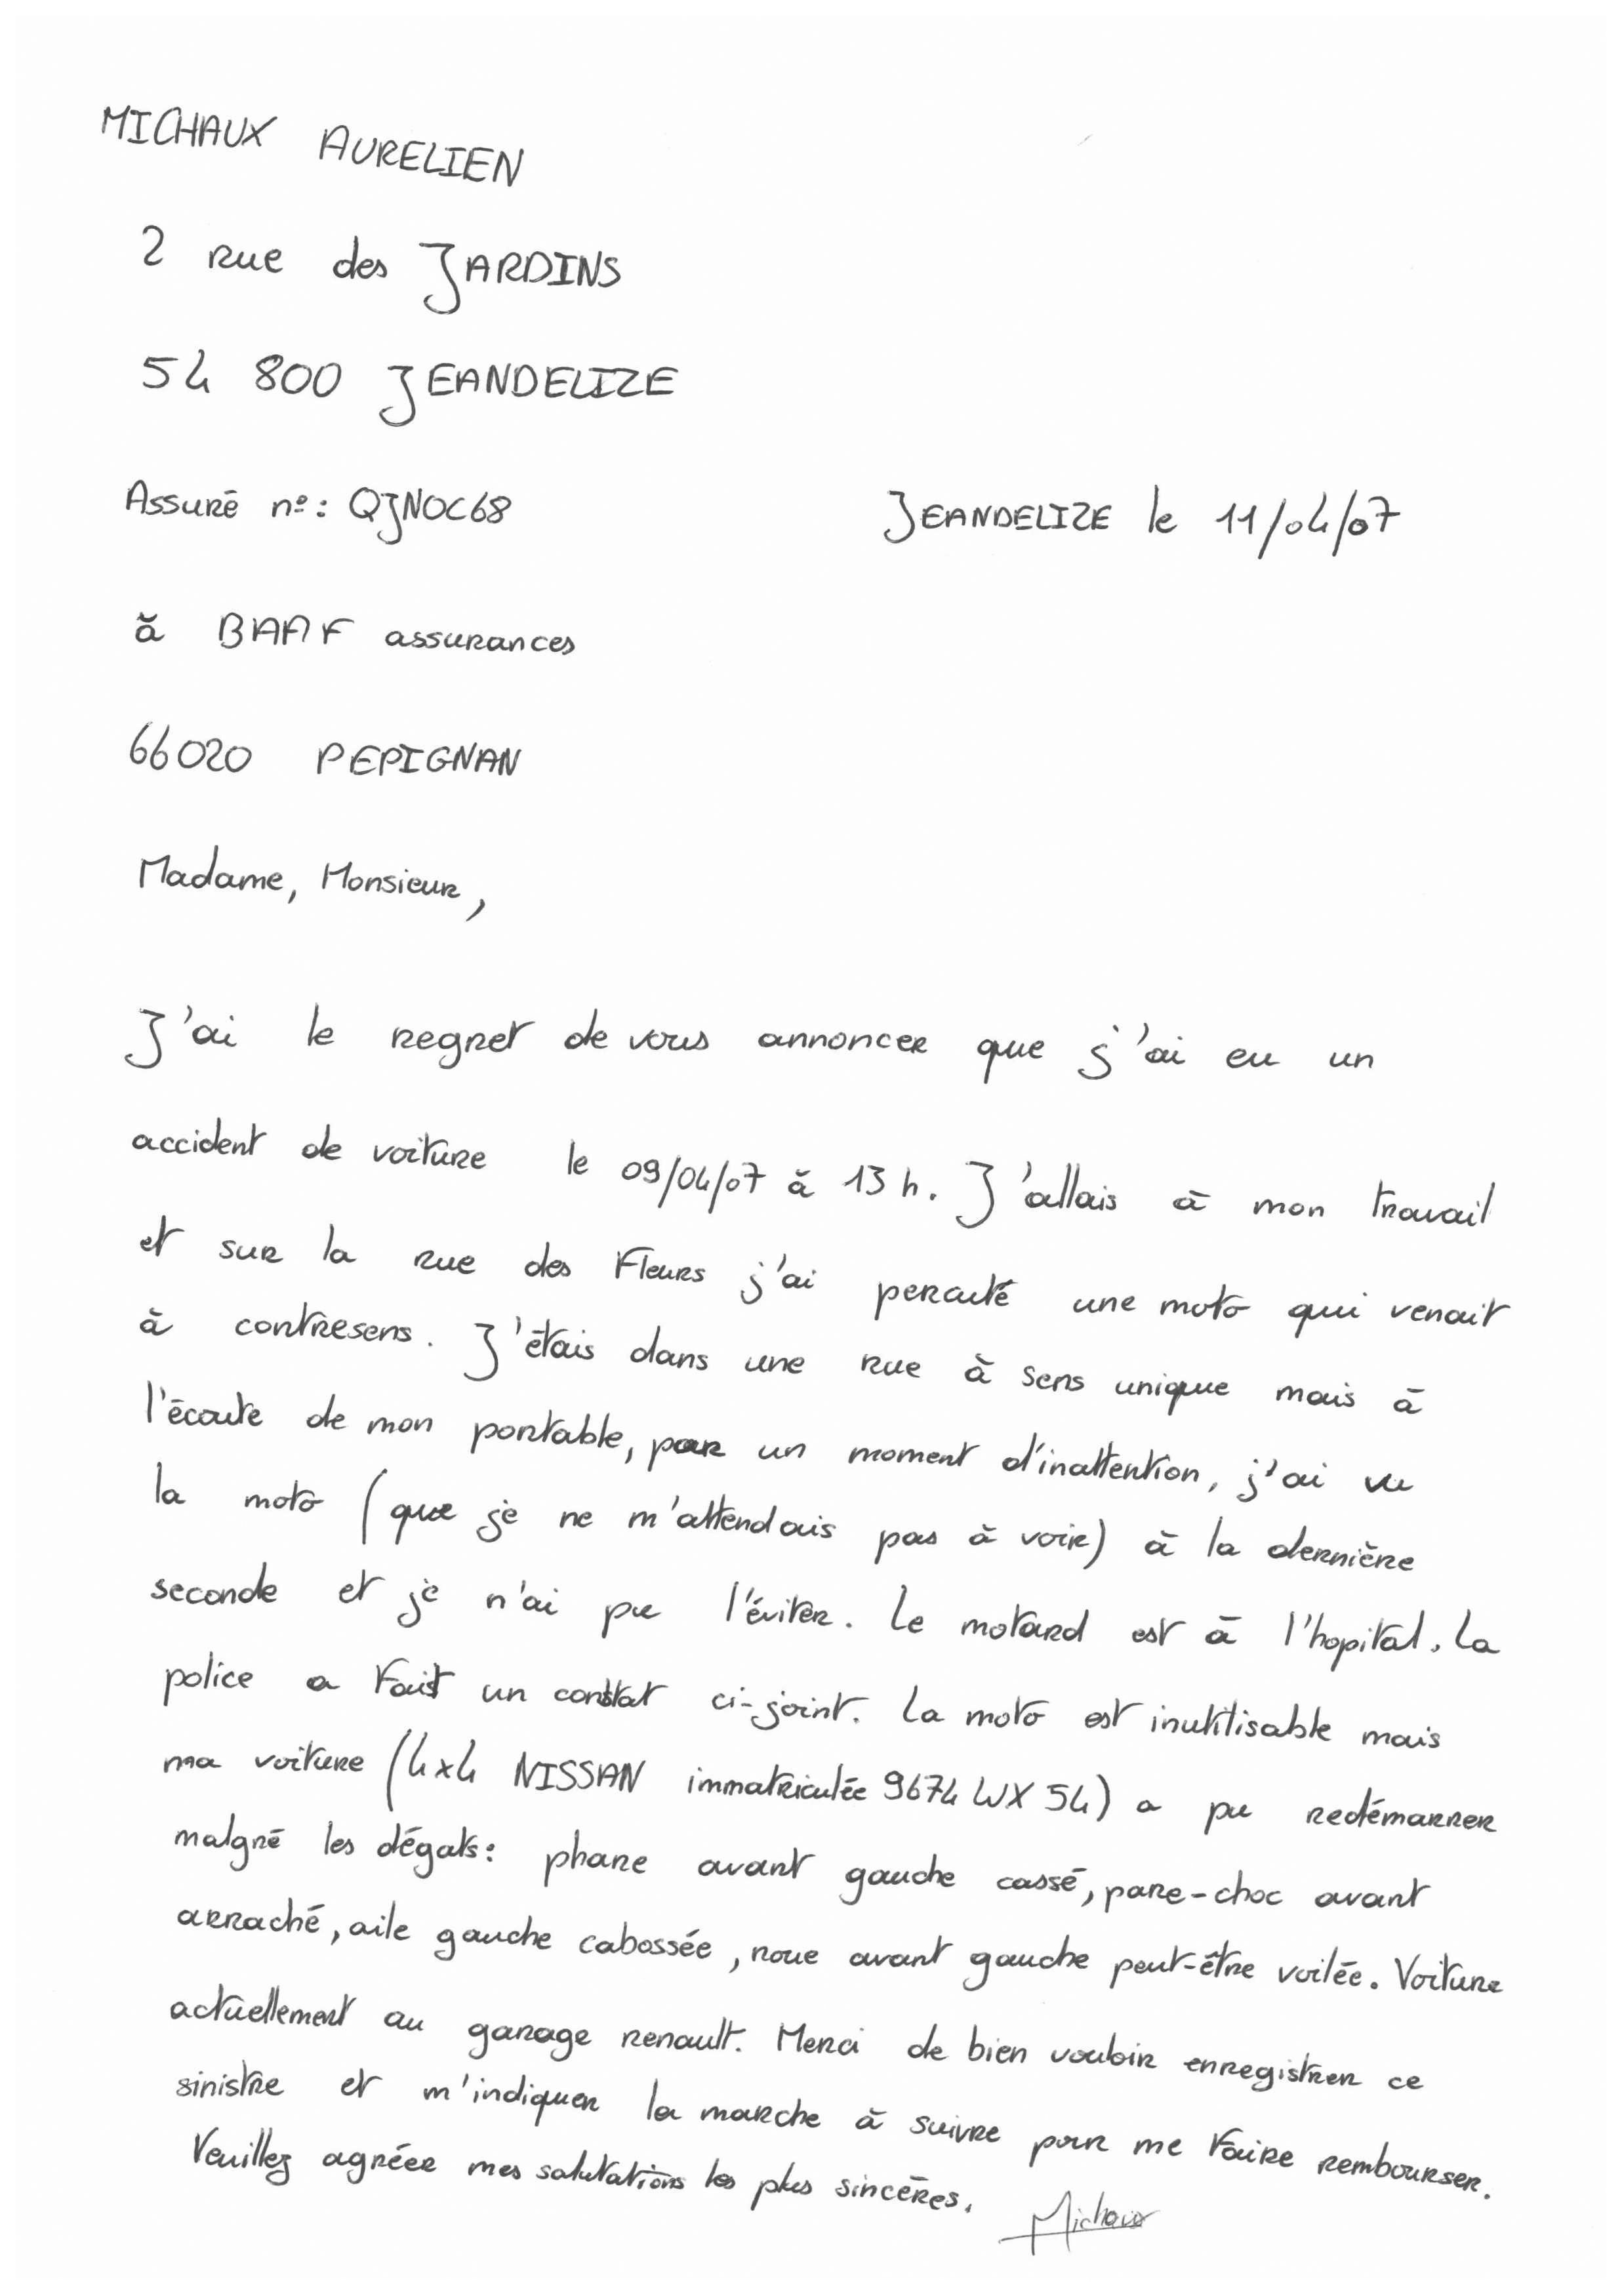 MICHAUX AURELIEN
2 rue des JARDINS
54 800 JEANDELIZE
Assuré n°: QJNOC68
JEANDELIZE le 11/04/07
à BAAF assurances
66020 PEPIGNAN
Madame, Monsieur,
J'ai le regret de vous annoncer que j'ai eu un
accident de voiture le 09/04/07 à 13 h. J'allais à mon travail
et sur la rue des Fleurs j'ai percuté une moto qui venait
à contresens. J'étais dans une rue à sens unique mais à
l'écoute de mon portable, par un moment d'inattention, j'ai vu
la moto (que je ne m'attendais pas à voir) à la dernière
seconde et je n'ai pu l'éviter. Le motard est à l'hopital. La
police a fait un constat ci-joint. La moto est inutilisable mais
ma voiture (4x4 NISSAN immatriculée 9674 WX 54) a pu redémarrer
malgré les dégats: phare avant gauche cassé, pare-choc avant
arraché, aile gauche cabossée, roue avant gauche peut-être voilée. Voiture
actuellement au garage renault. Merci de bien vouloir enregistrer ce
sinistre et m'indiquer la marche à suivre pour me faire rembourser.
Veuillez agréer mes salutations les plus sincères.
Michaux